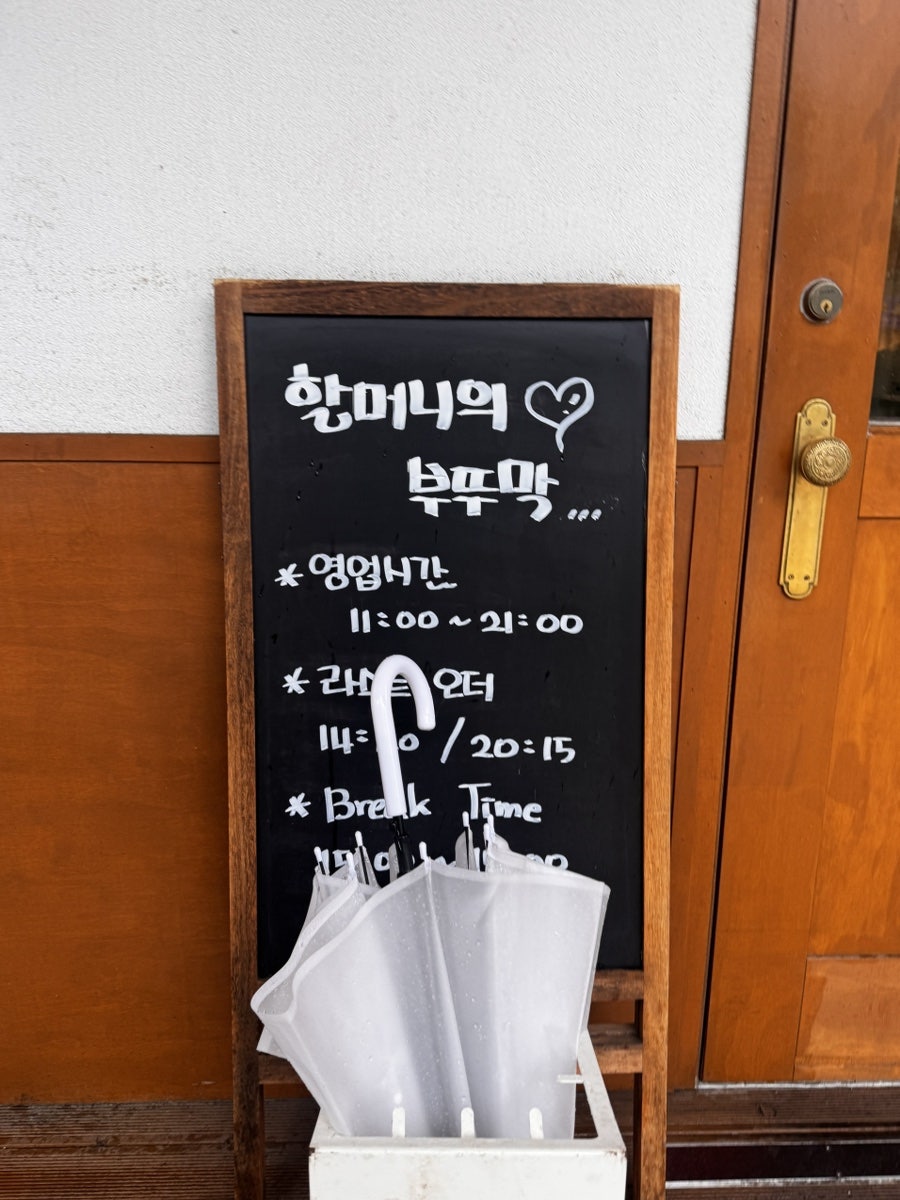 할머니의
부뚜막...
*영업시간
11:00 ~ 21:00
*라스트 오더
/ 20:15
*Break Time